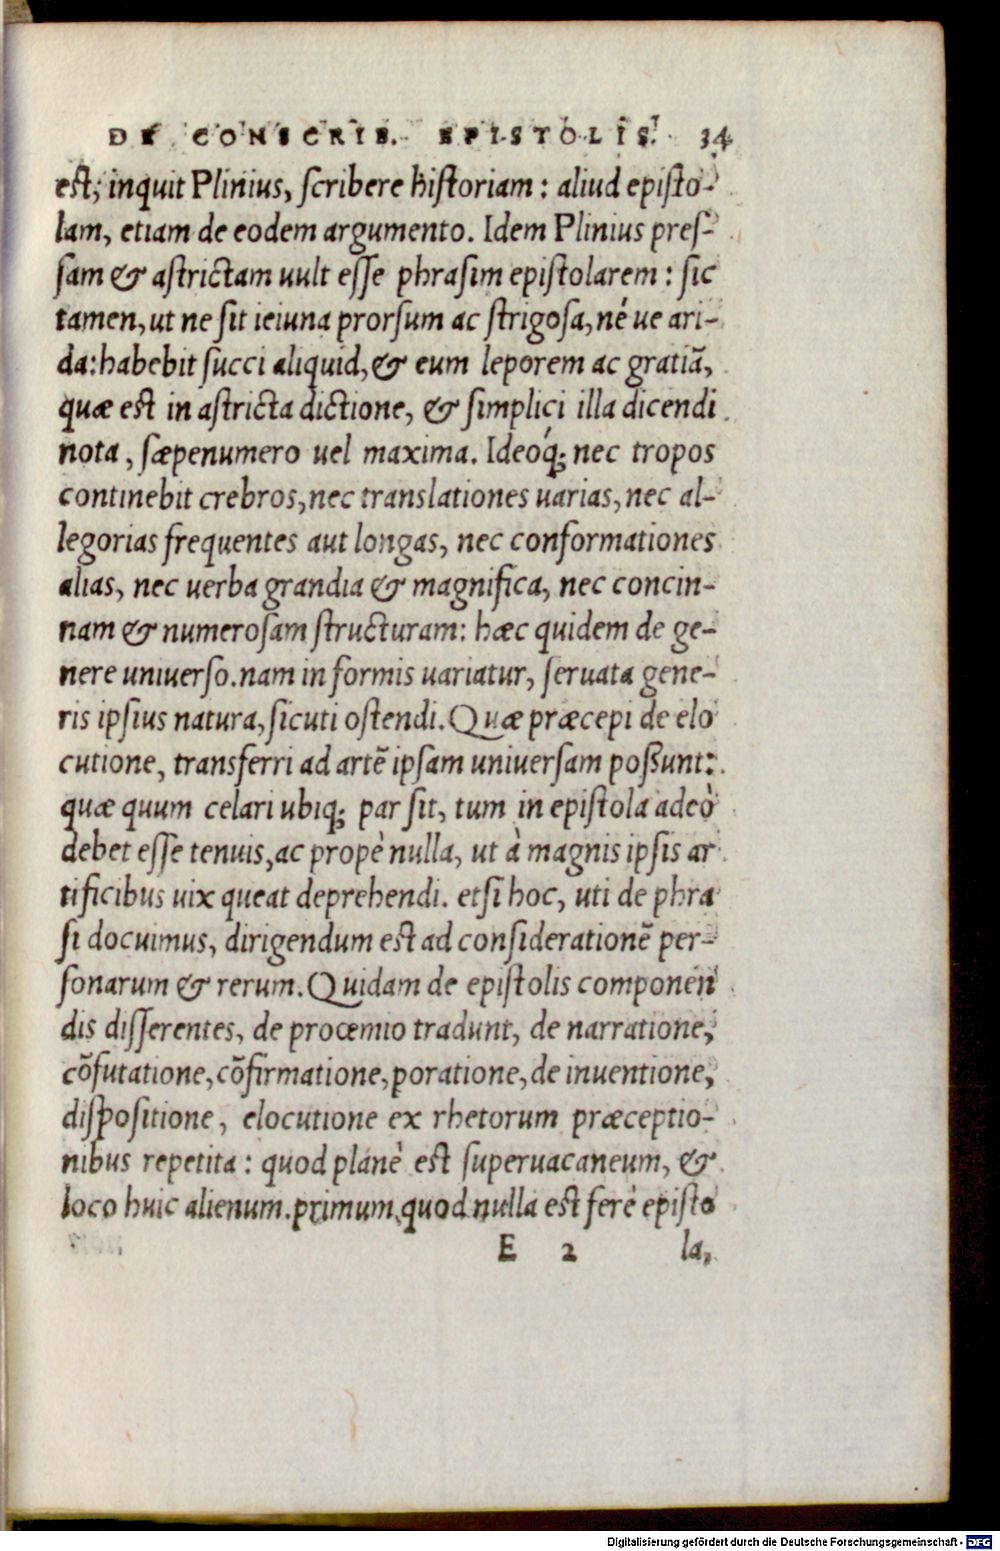 DE CONSCRIB. EPISTOLIS. 34
est, inquit Plinius, scribere historiam : aliud episto-
lam, etiam de eodem argumento. Idem Plinius pres-
sam & astrictam uult esse phrasim epistolarem : sic
tamen, ut ne sit ieiuna prorsum ac strigosa, né ue ari-
da: habebit succi aliquid, & eum leporem ac gratiã,
quæ est in astricta dictione, & simplici illa dicendi
nota, sæpenumero uel maxima. Ideoq́; nec tropos
continebit crebros, nec translationes uarias, nec al-
legorias frequentes aut longas, nec conformationes
alias, nec uerba grandia & magnifica, nec concin-
nam & numerosam structuram: hæc quidem de ge-
nere uniuerso. nam in formis uariatur, seruata gene-
ris ipsius natura, sicuti ostendi. Quæ præcepi de elo
cutione, transferri ad artẽ ipsam uniuersam possunt:
quæ quum celari ubiq; par sit, tum in epistola adeò
debet esse tenuis, ac propè nulla, ut à magnis ipsis ar
tificibus uix queat deprehendi. etsi hoc, uti de phra
si docuimus, dirigendum est ad considerationẽ per-
sonarum & rerum. Quidam de epistolis componen
dis disserentes, de procemio tradunt, de narratione,
cõfutatione, cõfirmatione, poratione, de inuentione,
dispositione, elocutione ex rhetorum præceptio-
nibus repetita : quod planè est superuacaneum, &
loco huic alienum. primum, quod nulla est ferè episto
E 2 la,
Digitalisierung gefördert durch die Deutsche Forschungsgemeinschaft - DFG